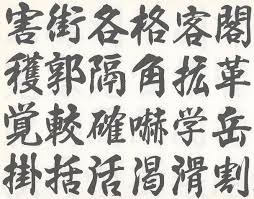 害街各格客閣
穫郭隔角拡革
覚較確嚇学岳
掛括活渇滑割